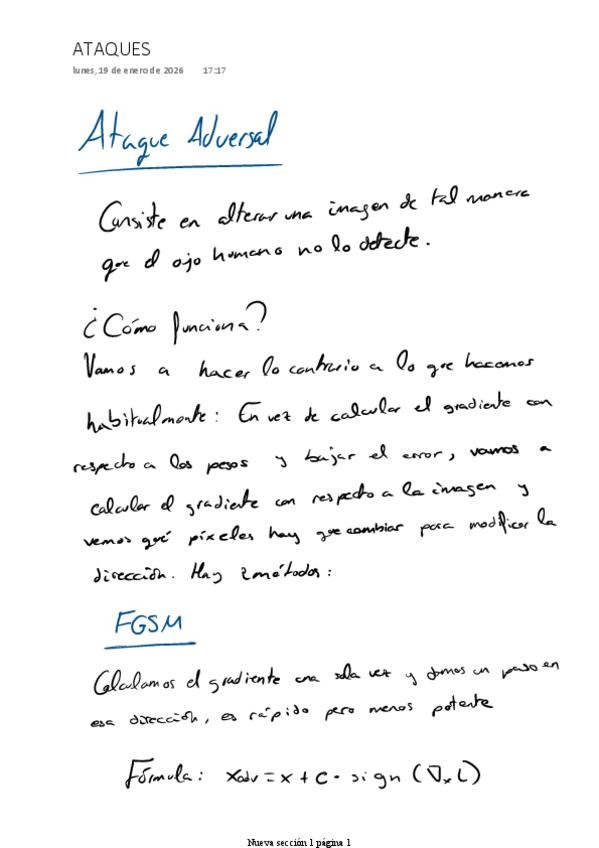 ATAQUES
lunes, 19 de enero de 2026 17:17
Ataque Adversal
Consiste en alterar una imagen de tal manera
que el ojo humano no lo detecte.
¿Cómo funciona?
Vamos a hacer lo contrario a lo que hacemos
habitualmente: En vez de calcular el gradiente con
respecto a los pesos y bajar el error, vamos a
calcular el gradiente con respecto a la imagen y
vemos qué píxeles hay que cambiar para modificar la
dirección. Hay 2 métodos:
FGSM
Calculamos el gradiente una sola vez y damos un paso en
esa dirección, es rápido pero menos potente
Fórmula: Xadv = x + C · sign (∇ₓ L)
Nueva sección 1 página 1